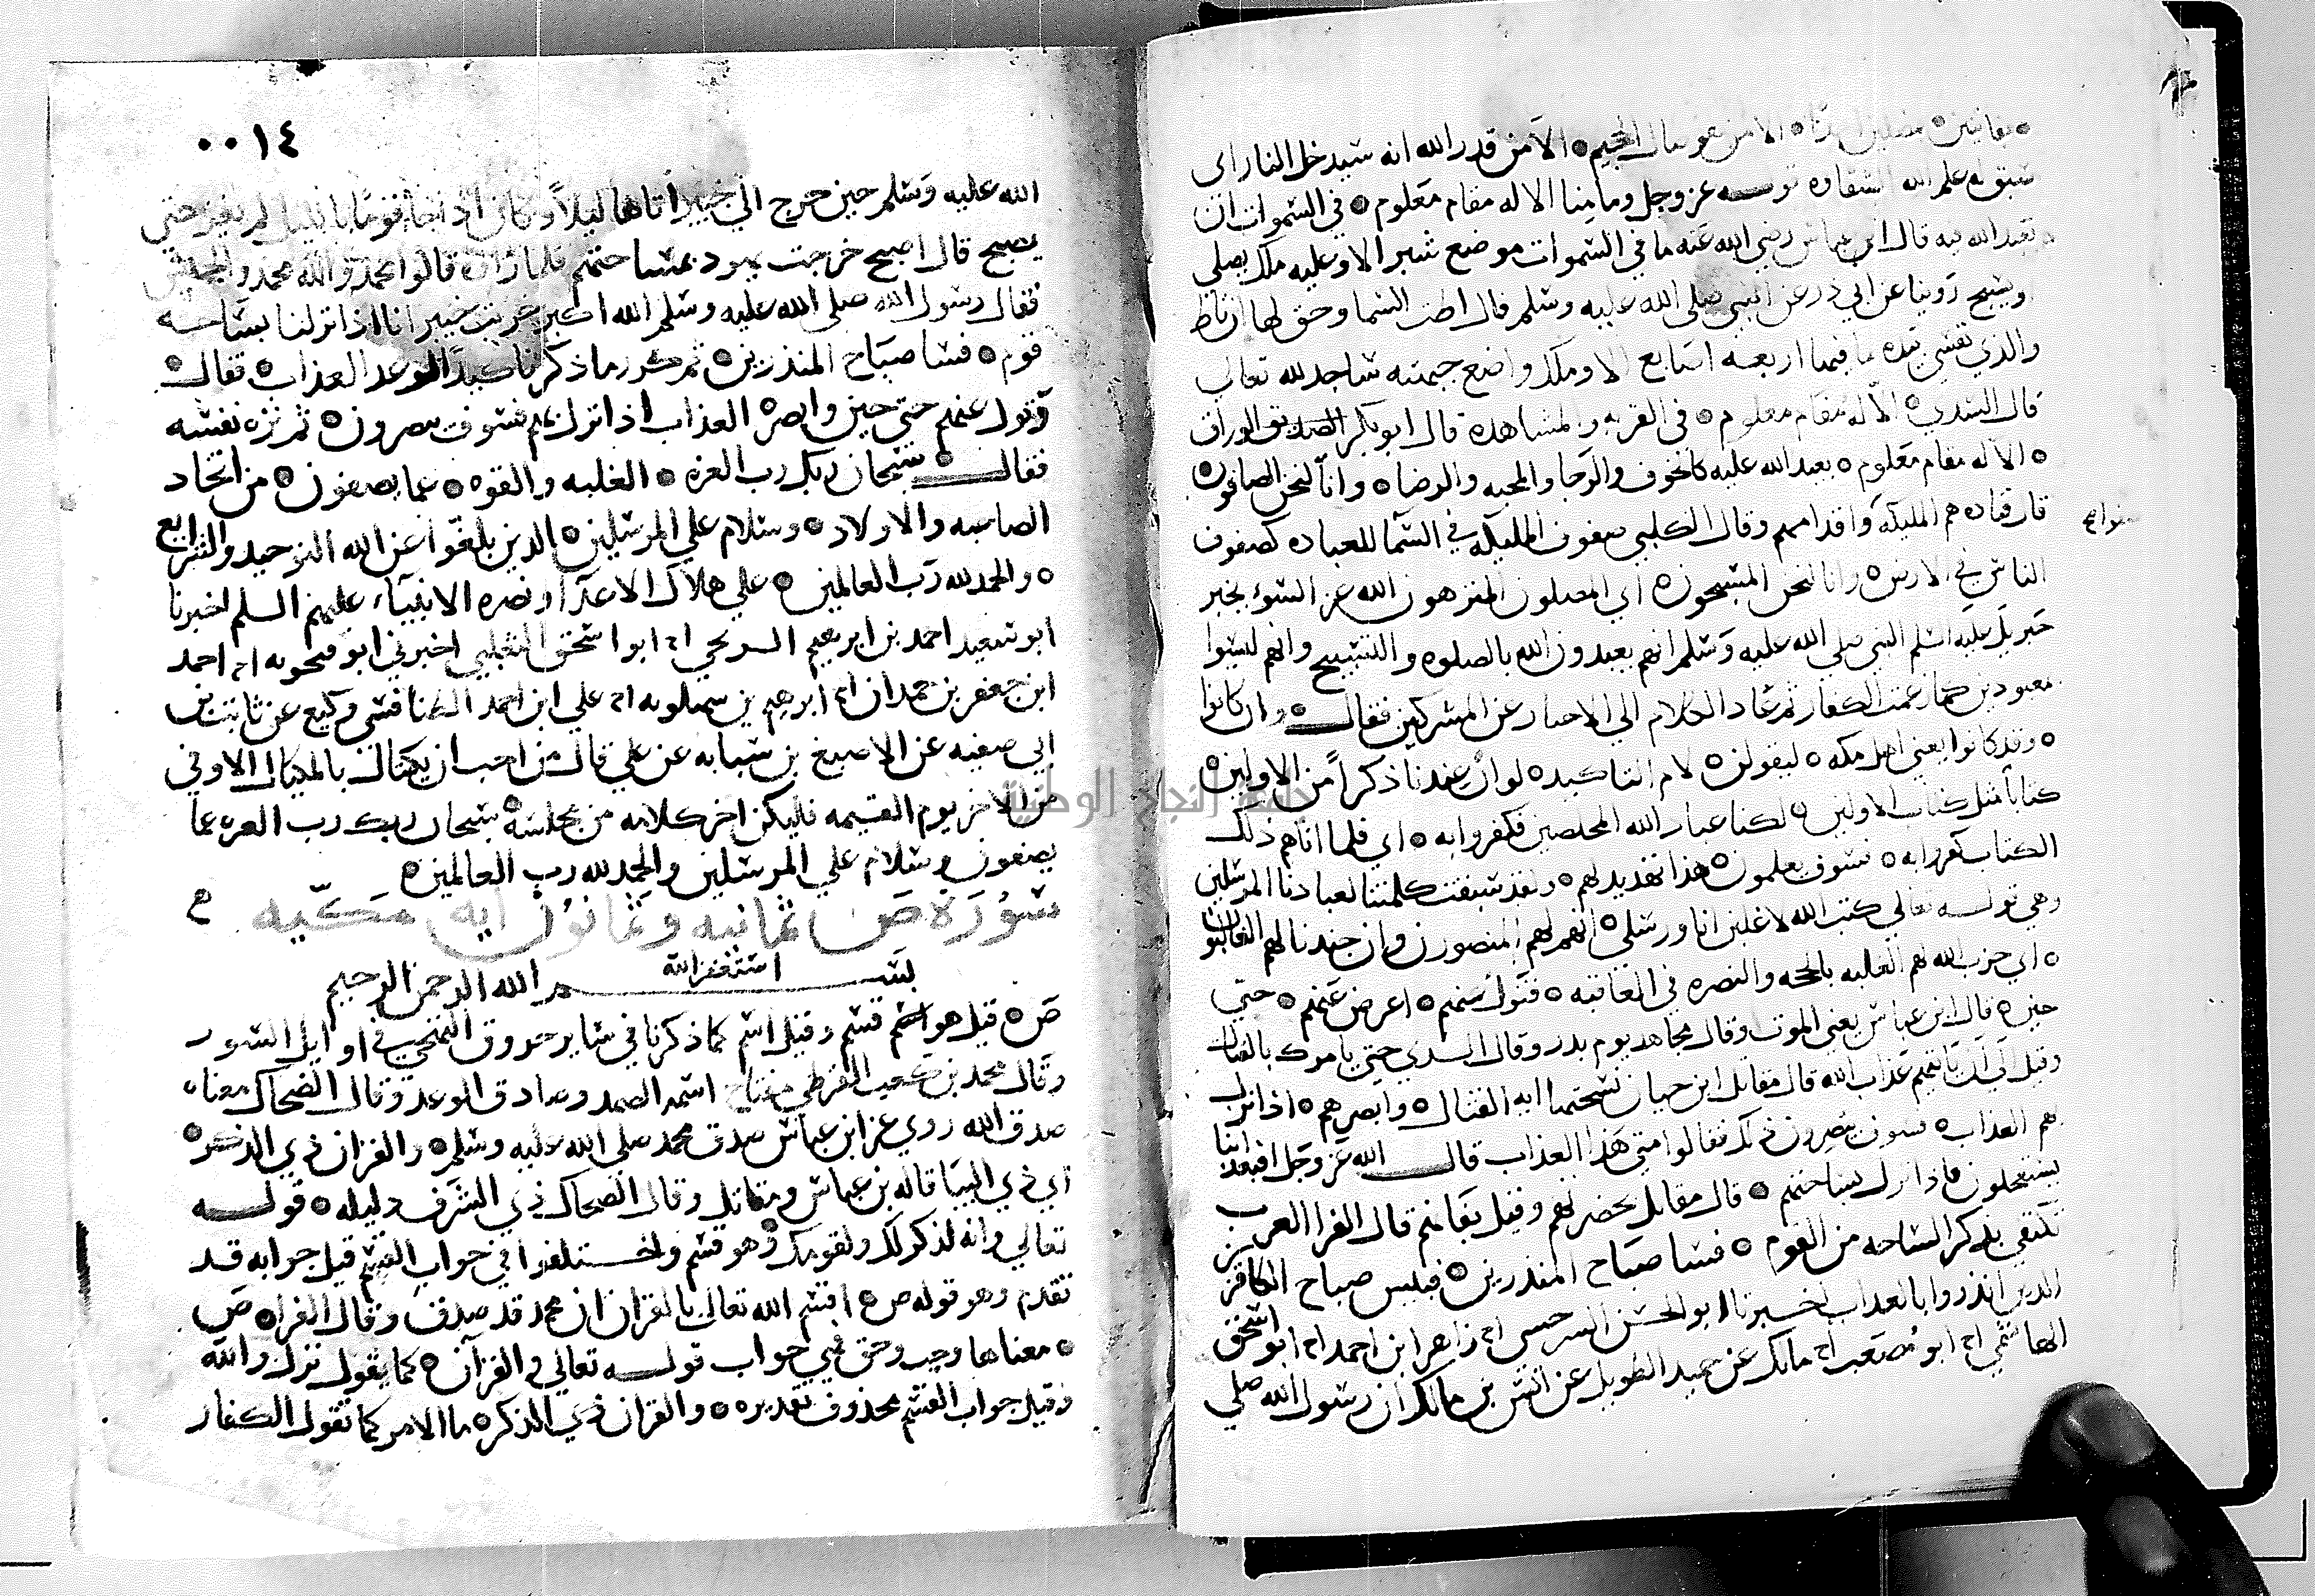 بفاتنين ه بمضلين احدا ه الا من هو صال الجحيم ه الا من قدر الله انه سيدخل النار اى
سبق له علم الله الشقاوه قوله عز وجل وما منا الا له مقام معلوم ه في السموات ان
يعبد الله فيه قال ابن عباس رضي الله عنه ما في السموات موضع شبر الا وعليه ملك يصلي
او يسبح روينا عن ابي ذر عن النبي صلى الله عليه وسلم قال اطت السما وحق لها ان تاط
والذي نفسي بيده ما فيها اربعه اصابع الا وملك واضع جبهته ساجد لله تعالى
قال السدي ه الا له مقام معلوم ه في القربه والمشاهده قال ابو بكر الوراق
ه الا له مقام معلوم ه يعبد الله عليه كالخوف والرجا والمحبه والرضا ه وانا لنحن الصافون ه
قال قتاده هم المليكه اقدامهم وقال الكلبي صفوف المليكه في السما للعباده كصفوف
صفوا
الناس في الارض ه وانا لنحن المسبحون ه اي المصلون المنزهون الله عن السوء يخبر
جبريل عليه السلم النبي صلى الله عليه وسلم انهم يعبدون الله بالصلوه والتسبيح وانهم ليسوا
معبودين كما زعمت الكفار ثم عاد الكلام الي الاخبار عن المشركين فقال ه وان كانوا
ه وقد كانوا يعني اهل مكه ه ليقولن ه لام التاكيد ه لو ان عندنا ذكرا من الاولين ه
كتابا مثل كتاب الاولين ه لكنا عباد الله المخلصين فكفروا به ه اي فلما اتاهم ذلك
الكتاب كفروا به ه فسوف يعلمون ه هذا تهديد لهم ه ولقد سبقت كلمتنا لعبادنا المرسلين
وهي قوله تعالي كتب الله لاغلبن انا ورسلي ه انهم لهم المنصورن وان جندنا لهم الغالبون
ه اي حزب الله لهم الغلبه بالحجه والنصره في العاقبه ه فتول عنهم ه اعرض عنهم ه حتي
حين ه قال ابن عباس يعني الموت وقال مجاهد يوم بدر وقال السدي حتي يامرك بالقتال
وقيل الي ان ياتيهم عذاب الله قال مقاتل ابن حيان نسختها ايه القتال ه وابصرهم ه اذا نزل
بهم العذاب ه فسوف يبصرون ذلك فقالوا متي هذا العذاب قال الله عز وجل افبعذابنا
يستعجلون فاذا نزل بساحتهم ه قال مقاتل بحضرتهم وقيل بفنائهم قال الفرا العرب
تكتفي بذكر الساحه من القوم ه فسا صباح المنذرين ه فبيس صباح الكافرين
الذين انذروا بالعذاب اخبرنا ابو الحسن السرخسي انا زاهر ابن احمد انا ابو اسحق
الهاشمي انا ابو مصعب انا مالك عن حميد الطويل عن انس بن مالك ان رسول الله صلي
٠٠١٤
الله عليه وسلم حين خرج الي خيبر اتاها ليلا وكان اذا جا قوما بليل لم يغز حتي
يصبح قال اصبح خرجت يهود بمساحيهم فلما راوه قالوا محمد والله محمد والخميس
فقال رسول الله صلى الله عليه وسلم الله اكبر خربت خيبر انا اذا نزلنا بساحه
قوم ه فسا صباح المنذرين ه ثم كرر ما ذكر تاكيدا لوعد العذاب ه فقال ه
وتول عنهم حتي حين وابصر ه العذاب اذا نزل بهم فسوف يبصرون ه ثم نزه نفسه
فقال ه سبحان ربك رب العزه ه الغلبه والقوه ه عما يصفون ه من اتخاد
الصاحبه والاولاد ه وسلام علي المرسلين ه الذين بلغوا عن الله التوحيد والشرايع
ه والحمد لله رب العالمين ه علي هلاك الاعدا ونصره الانبياء عليهم السلم اخبرنا
ابو سعيد احمد بن ابرهيم السريحي انا ابو اسحق الثعلبي اخبرني ابو فنجويه انا احمد
ابن جعفر بن حمدان انا ابرهيم بن سهلويه انا علي ابن احمد الطنافسي وكيع عن ثابت بن
ابي صفيه عن الاصبغ بن نباته عن علي قال من احب ان يكتال بالمكيال الاوفي
من الاجر يوم القيمه فليكن اخر كلامه من مجلسه ه سبحان ربك رب العزه عما
يصفون وسلام علي المرسلين والحمد لله رب العالمين ه
سورة ص ثمانيه وثمانون ايه مكيه
استغفر الله
بسم الله الرحمن الرحيم
ص ه قيل هو قسم وقيل اسم كما ذكرنا في ساير حروف التهجي في اوايل السور
وقال محمد بن كعب القرظي مفتاح اسمه الصمد وصادق الوعد وقال الضحاك معناه
صدق الله روي عن ابن عباس صدق محمد صلى الله عليه وسلم ه والقران ذي الذكر ه
اي ذي البيان قاله بن عباس ومقاتل وقال الضحاك ذي الشرف دليله ه قوله
تعالي وانه لذكر لك ولقومك وهو قسم واختلفوا في جواب القسم قيل جوابه قد
تقدم وهو قوله ص ه اقسم الله تعالي بالقران ان محمد قد صدق وقال الفرا ه ص
ه معناها وجب وحق فهي جواب قوله تعالي والقرآن ه كما يقول نزل والله
وقيل جواب القسم محذوف تقديره ه والقران ذي الذكر ه ما الامر كما تقول الكفار
جامعة النجاح الوطنية